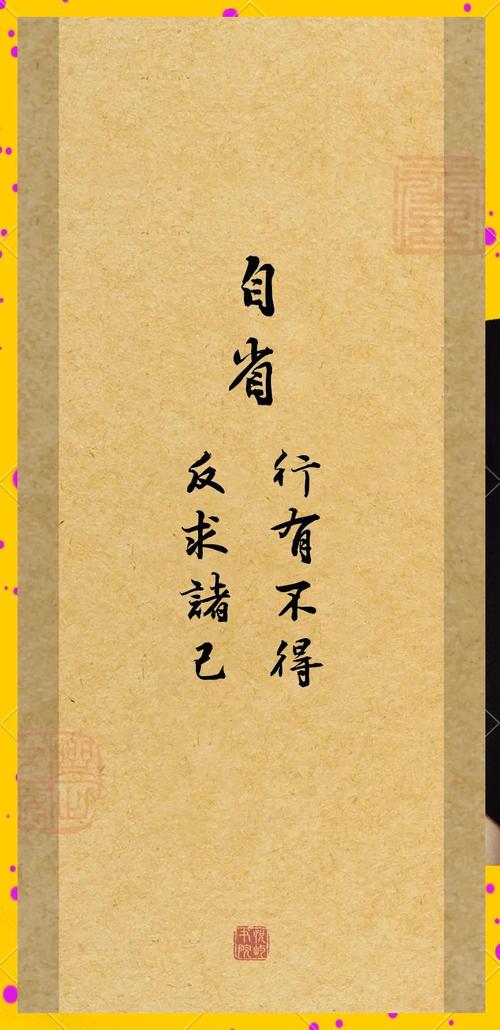 自省
行有不得
反求諸己